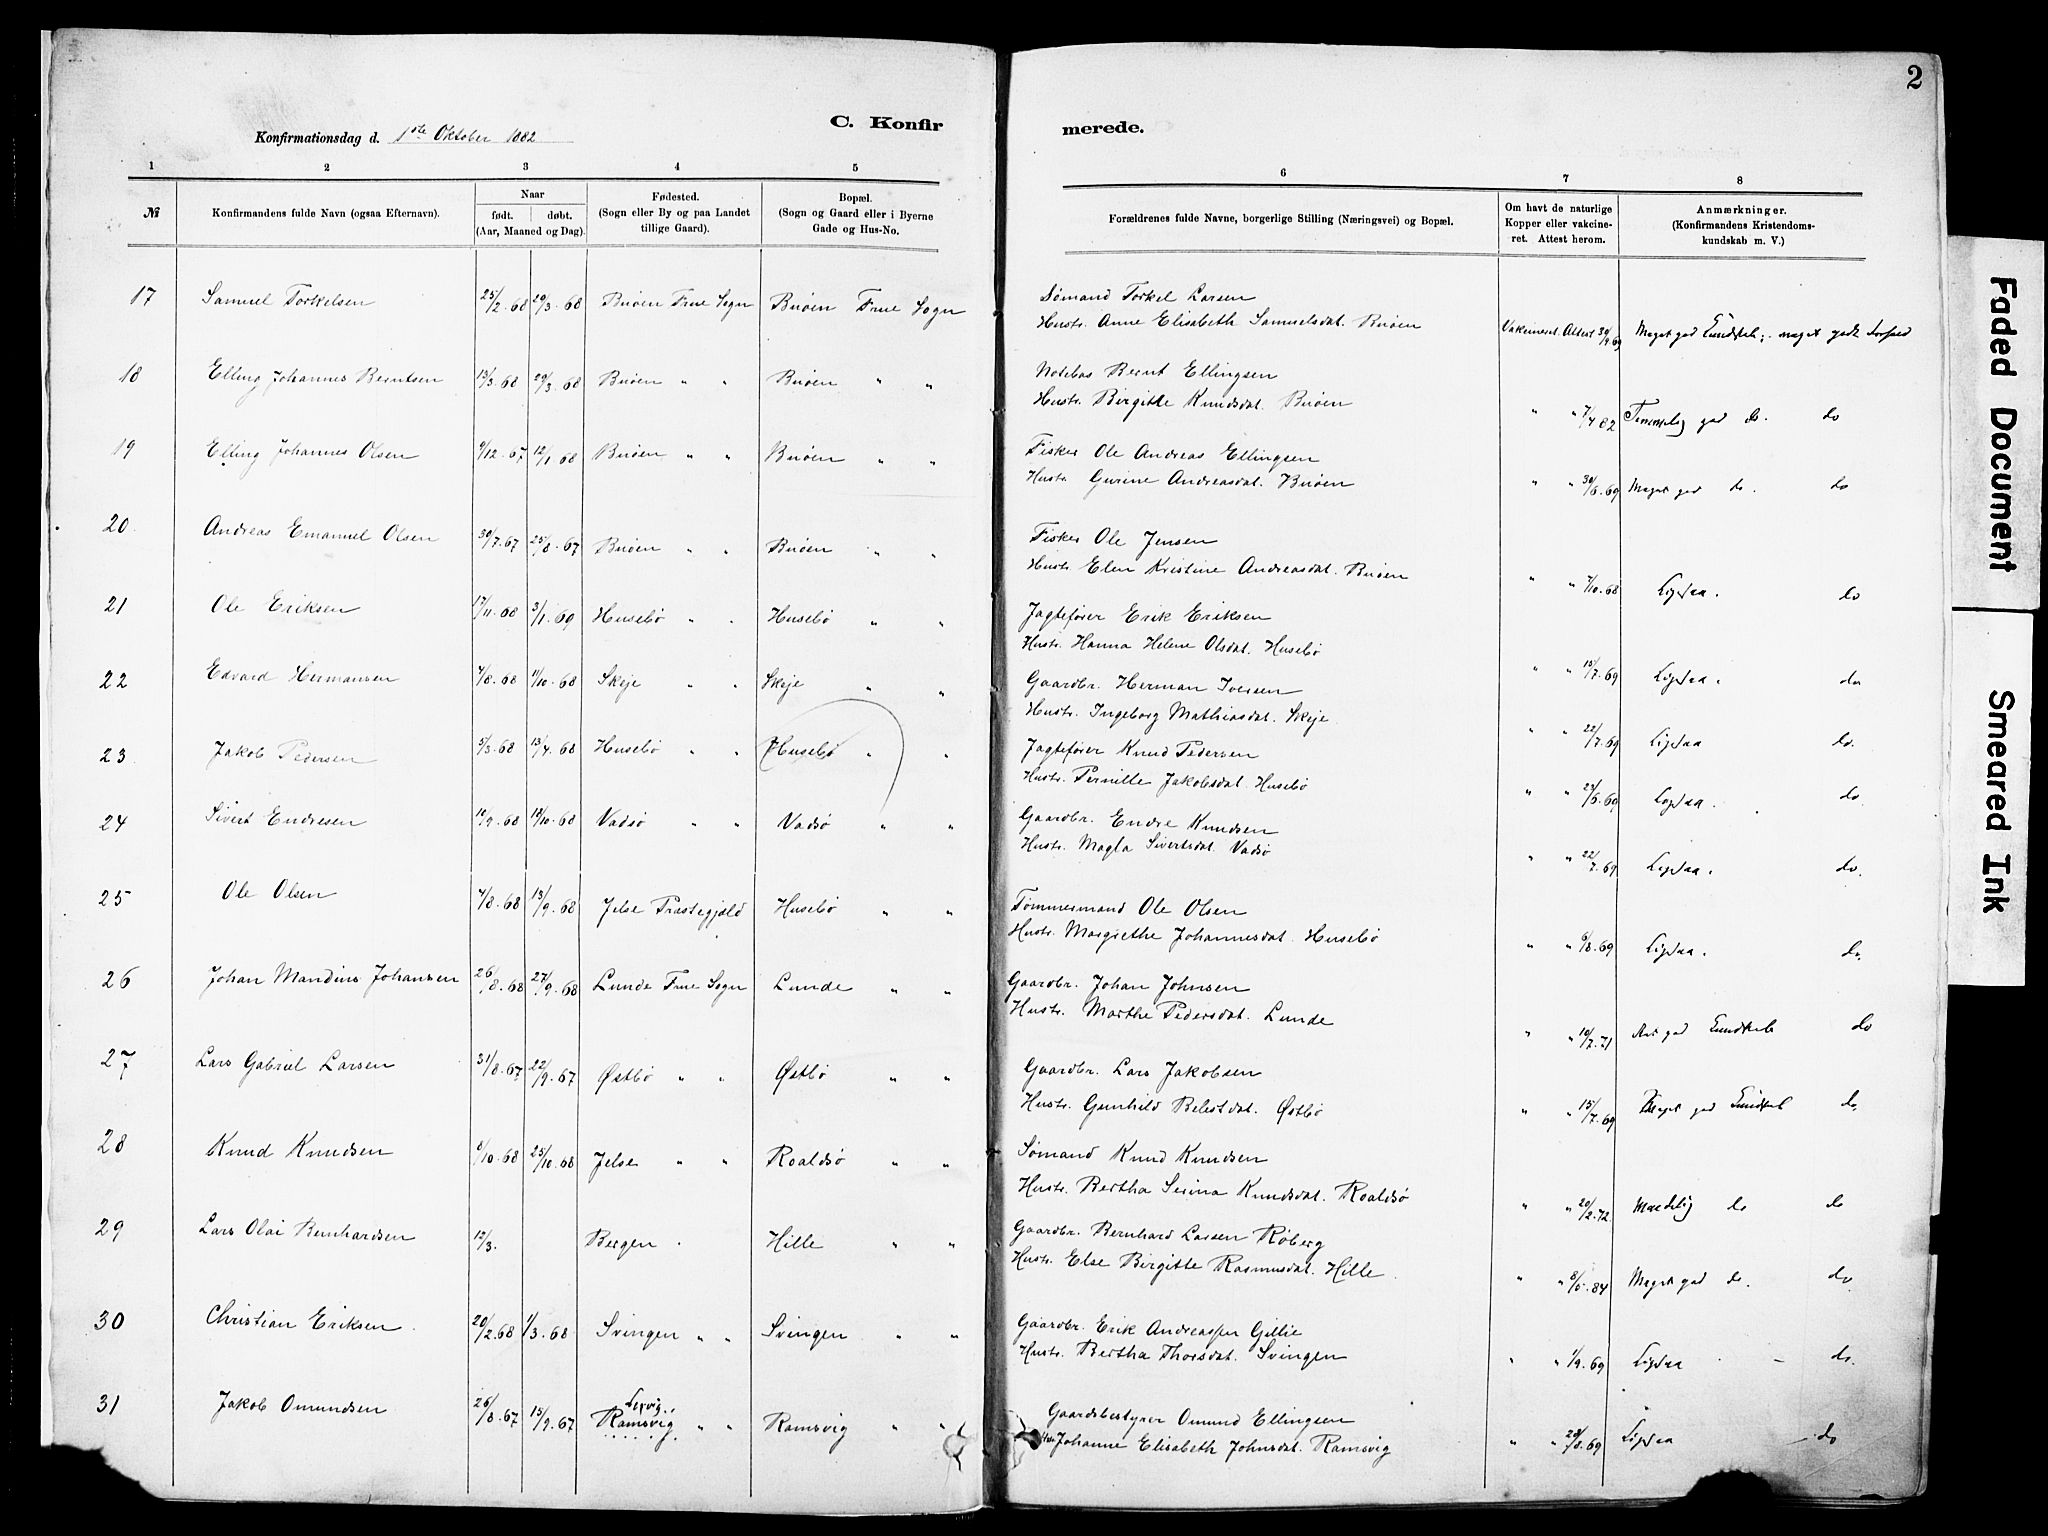 2
C. Konfir
merede.
Konfirmationsdag d. 1ste Oktober 1882
1 2 3 4 5 6 7 8
№ Konfirmandens fulde Navn (ogsaa Efternavn). Naar født. døbt. (Aar, Maaned og Dag). Fødested. (Sogn eller By og paa Landet tillige Gaard). Bopæl. (Sogn og Gaard eller i Byerne Gade og Hus-No. Forældrenes fulde Navne, borgerlige Stilling (Næringsvei) og Bopæl. Om havt de naturlige Kopper eller vakcineret. Attest herom. Anmærkninger. (Konfirmandens Kristendomskundskab m. V.)
17 Samuel Torkelsen 25/2.68 29/3.68 Buøen Frue Sogn Buøen Frue Sogn Sømand Torkel Larsen
Hustr. Anne Elisabeth Samuelsdat. Buøen Vakcineret. Attest 30/9 69 Meget god Kundskab; meget godt Forhold
18 Elling Johannes Berntsen 13/3.68 29/3.68 Buøen " " Buøen " " Notebas Bernt Ellingsen
Hustr. Birgitte Knudsdat. Buøen " " 7/4 82 Temmelig god do. do
19 Elling Johannes Olsen 9/12.67 12/1.68 Buøen " " Buøen " " Fisker Ole Andreas Ellingsen
Hustr. Gurine Andreasdat. Buøen " " 30/6.69 Meget god do. do
20 Andreas Emanuel Olsen 30/7.67 25/8.67 Buøen " " Buøen " " Fisker Ole Jensen
Hustr. Elen Kristine Andreasdat. Buøen " " 7/10.68 Ligesaa. do
21 Ole Eriksen 17/11.68 3/1.69 Husebø " " Husebø " " Jagtefører Erik Eriksen
Hustr. Hanna Helene Olsdat. Husebø " " 15/7.69 Ligesaa. do
22 Edvard Hermansen 7/8.68 11/10.68 Skeje " " Skeje " " Gaardbr. Herman Iversen
Hustr. Ingeborg Mathiasdat. Skeje " " 22/7.69 Ligesaa do.
23 Jakob Pedersen 5/3.68 13/4.68 Husebø " " Husebø " " Jagtefører Knud Pedersen
Hustr. Pernille Jakobsdat. Husebø " " 23/6.69 Ligesaa. do
24 Sivert Endresen 10/9.68 18/10.68 Vadsø " " Vadsø " " Gaardbr. Endre Knudsen
Hustr. Magla Sivertsdat. Vadsø " " 22/7.69 Ligesaa. do.
25 Ole Olsen 7/8.68 13/9.68 Jelse Præstegjæld Husebø " " Tømmermand Ole Olsen
Hustr. Margrethe Johannesdat. Husebø " " 6/8.69 Ligesaa. do.
26 Johan Mandius Johansen 26/8.68 27/9.68 Lunde Frue Sogn Lunde " " Gaardbr. Johan Johnsen
Hustr. Marthe Pedersdat. Lunde " " 10/7.71 god Kundskab do
27 Lars Gabriel Larsen 31/8.67 22/9.67 Østbø " " Østbø " " Gaardbr. Lars Jakobsen
Hustr. Gunhild Belestdat. Østbø " " 15/7.69 Meget god Kundskab do.
28 Knud Knudsen 8/10.68 25/10.68 Jelse " " Roaldsø " " Sømand Knud Knudsen
Hustr. Bertha Serina Knudsdat. Roaldsø " " 20/2.72 Maadelig do do
29 Lars Olai Bernhardsen 12/3. Bergen. Hille " " Gaardbr. Bernhard Larsen Røberg
Hustr. Else Birgitte Rasmusdat. Hille " " 8/5.84 Meget god do. do
30 Christian Eriksen. 20/2.68 1/3.68 Svingen " " Svingen " " Gaardbr. Erik Andreassen Gillie
Hustr. Bertha Thorsdat. Svingen " " 1/9.69 Ligesaa - do.
31 Jakob Omundsen 26/8.67 15/9.67 Ramsvig " " Ramsvig " " Gaardsbestyrer Omund Ellingsen
Johanne Elisabeth Johnsdat. Ramsvig " " 28/8.69 Ligesaa do
Faded Document
Smeared Ink